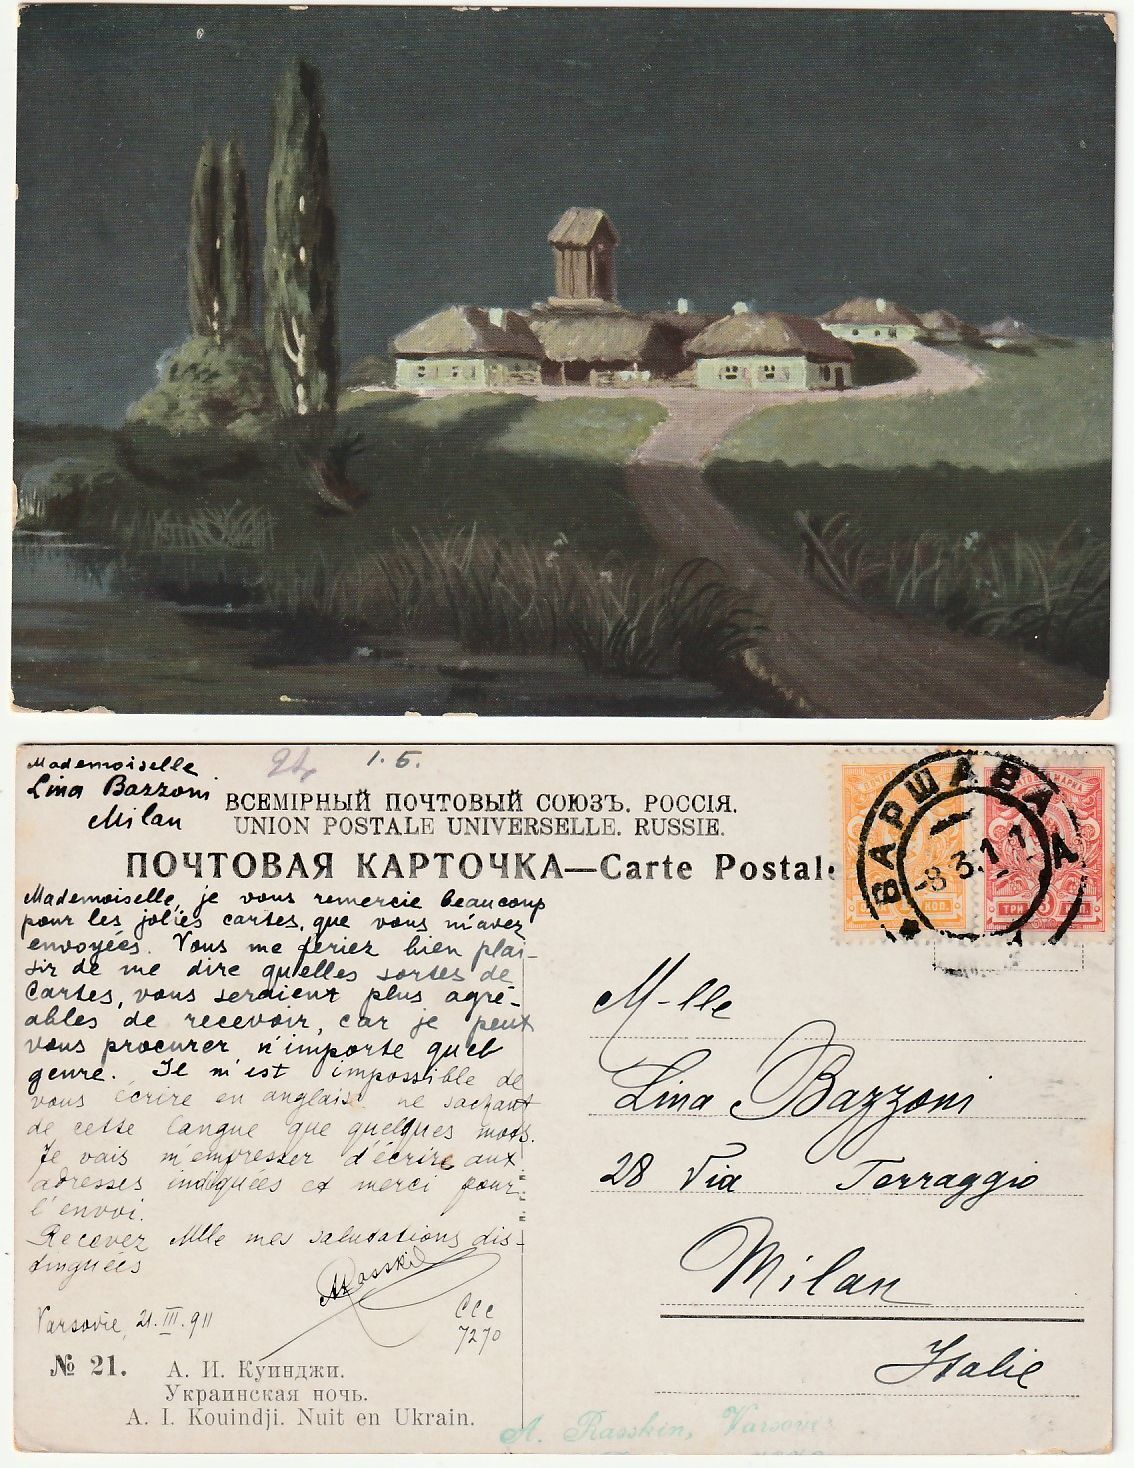 Mademoiselle
Lina Bazzoni
Milan
1.5.
ВСЕМІРНЫЙ ПОЧТОВЫЙ СОЮЗЪ. РОССІЯ.
UNION POSTALE UNIVERSELLE. RUSSIE.
ПОЧТОВАЯ КАРТОЧКА—Carte Postale
ВАРШАВА
-8 3.11
А
КОП.
ТРИ 3 КОП.
Mademoiselle, je vous remercie beaucoup
pour les jolies cartes, que vous m'avez
envoyées. Vous me feriez bien plai-
sir de me dire quelles sortes de
cartes, vous seraient plus agré-
ables de recevoir, car je peut
vous procurer n'importe quel
genre. Il m'est impossible de
vous écrire en anglais ne sachant
de cette langue que quelques mots.
Je vais m'empresser d'écrire aux
adresses indiquées et merci pour
l'envoi.
Recevez Mlle mes salutations dis-
tinguées
ARasskin
Varsovie, 21.III.911
CCC
7270
№ 21.
А. И. Куинджи.
Украинская ночь.
A. I. Kouindji. Nuit en Ukrain.
M-lle
Lina Bazzoni
28 Via Terraggio
Milan
Italie
A. Rasskin, Varsovie